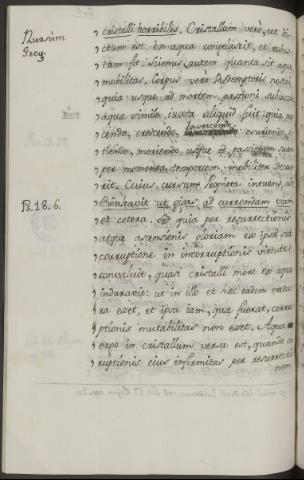 Rursùm
Greg.
cristalli horribilis. Cristallum verò, ut di-
ctum est, ex aqua congelascit, et robus-
tum fit. Scimus autem quanta sit aquæ
mobilitas. Corpus verò Redemptoris nostri
quia usque ad mortem passioni subiacuit
aquæ simile iuxta aliquid fuit: quia nas-
cendo, crescendo, lassescendo esuriendo, si-
tiendo, moriendo usque ad passionem suam
per momenta temporum mutabiliter decur-
rit. Cuius cursum Propheta intuens, ait:
Ps. 18. 6.
Exultavit ut gigas ad currendam viam
et cetera. Sed quia per resurrectionis
atque ascensionis gloriam ex ipsa sua
corruptione in incorruptionis virtute
convaluit, quasi cristalli more ex aqua
induravit: ut in illo et hæc eadem natu-
ra esset, et ipsa iam, quæ fuerat, corru-
ptionis mutabilitas non esset. Aqua
ergo in cristallum versa est, quando cor-
ruptionis eius infirmitas per resurrectio-
nem